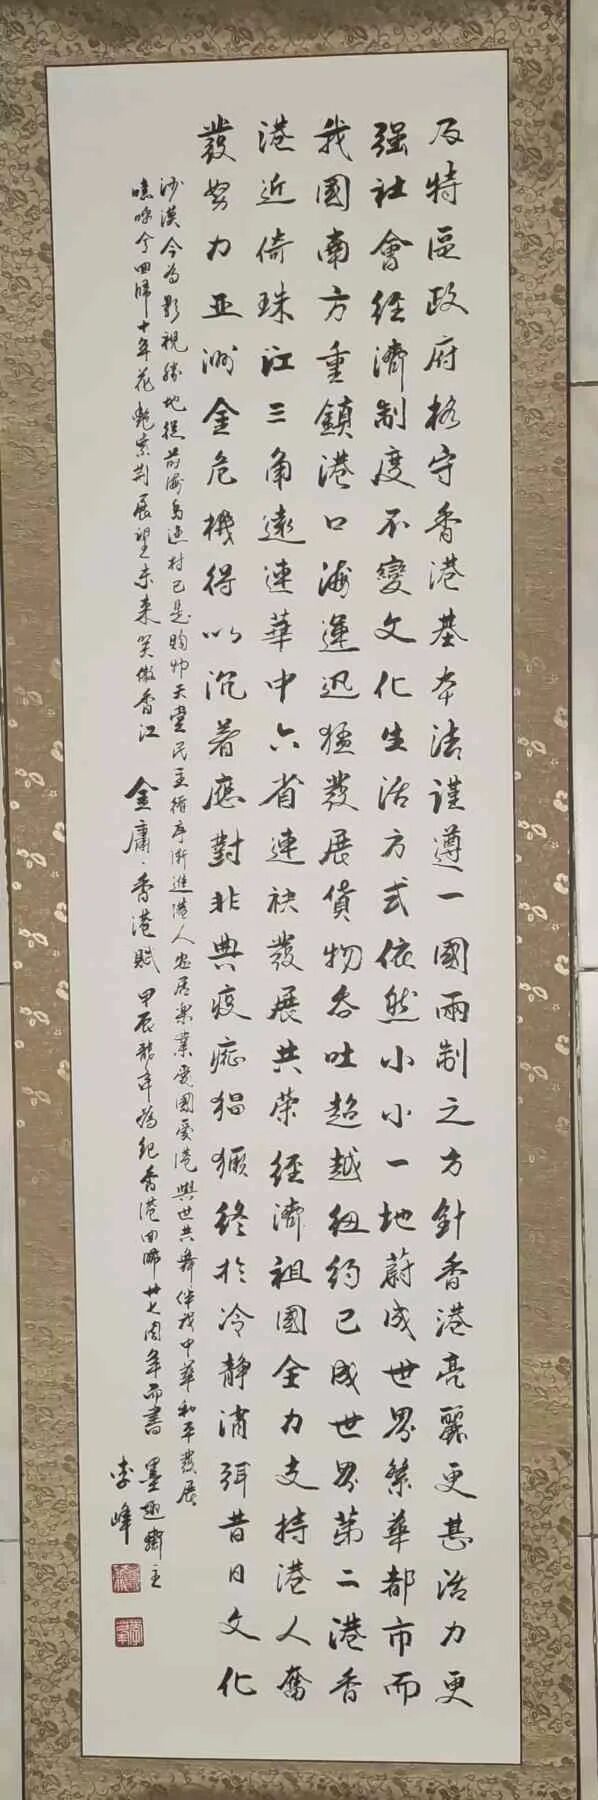 及特區政府格守香港基本法謹遵一國兩制之方針香港亮麗更甚活力更
強社會經濟制度不變文化生活方式依然小小一地蔚成世界繁華都市而
我國南方重鎮港口海運迅猛發展貨物吞吐超越紐約已成世界第二港香
港近倚珠江三角遠連華中六省連袂發展共榮經濟祖國全力支持港人奮
發努力亞洲金危機得以沉着應對非典疫症猖獗終於冷靜消弭昔日文化
沙漠今為影視勝地從前海島漁村已是購物天堂民主循序漸進港人安居樂業愛國愛港與世共舞伴我中華和平發展
嘻噫兮回歸十年花艷紫荆展望未來笑傲香江 金庸·香港賦 甲辰龍年為紀香港回歸廿七周年而書 墨趣齋主
李峰